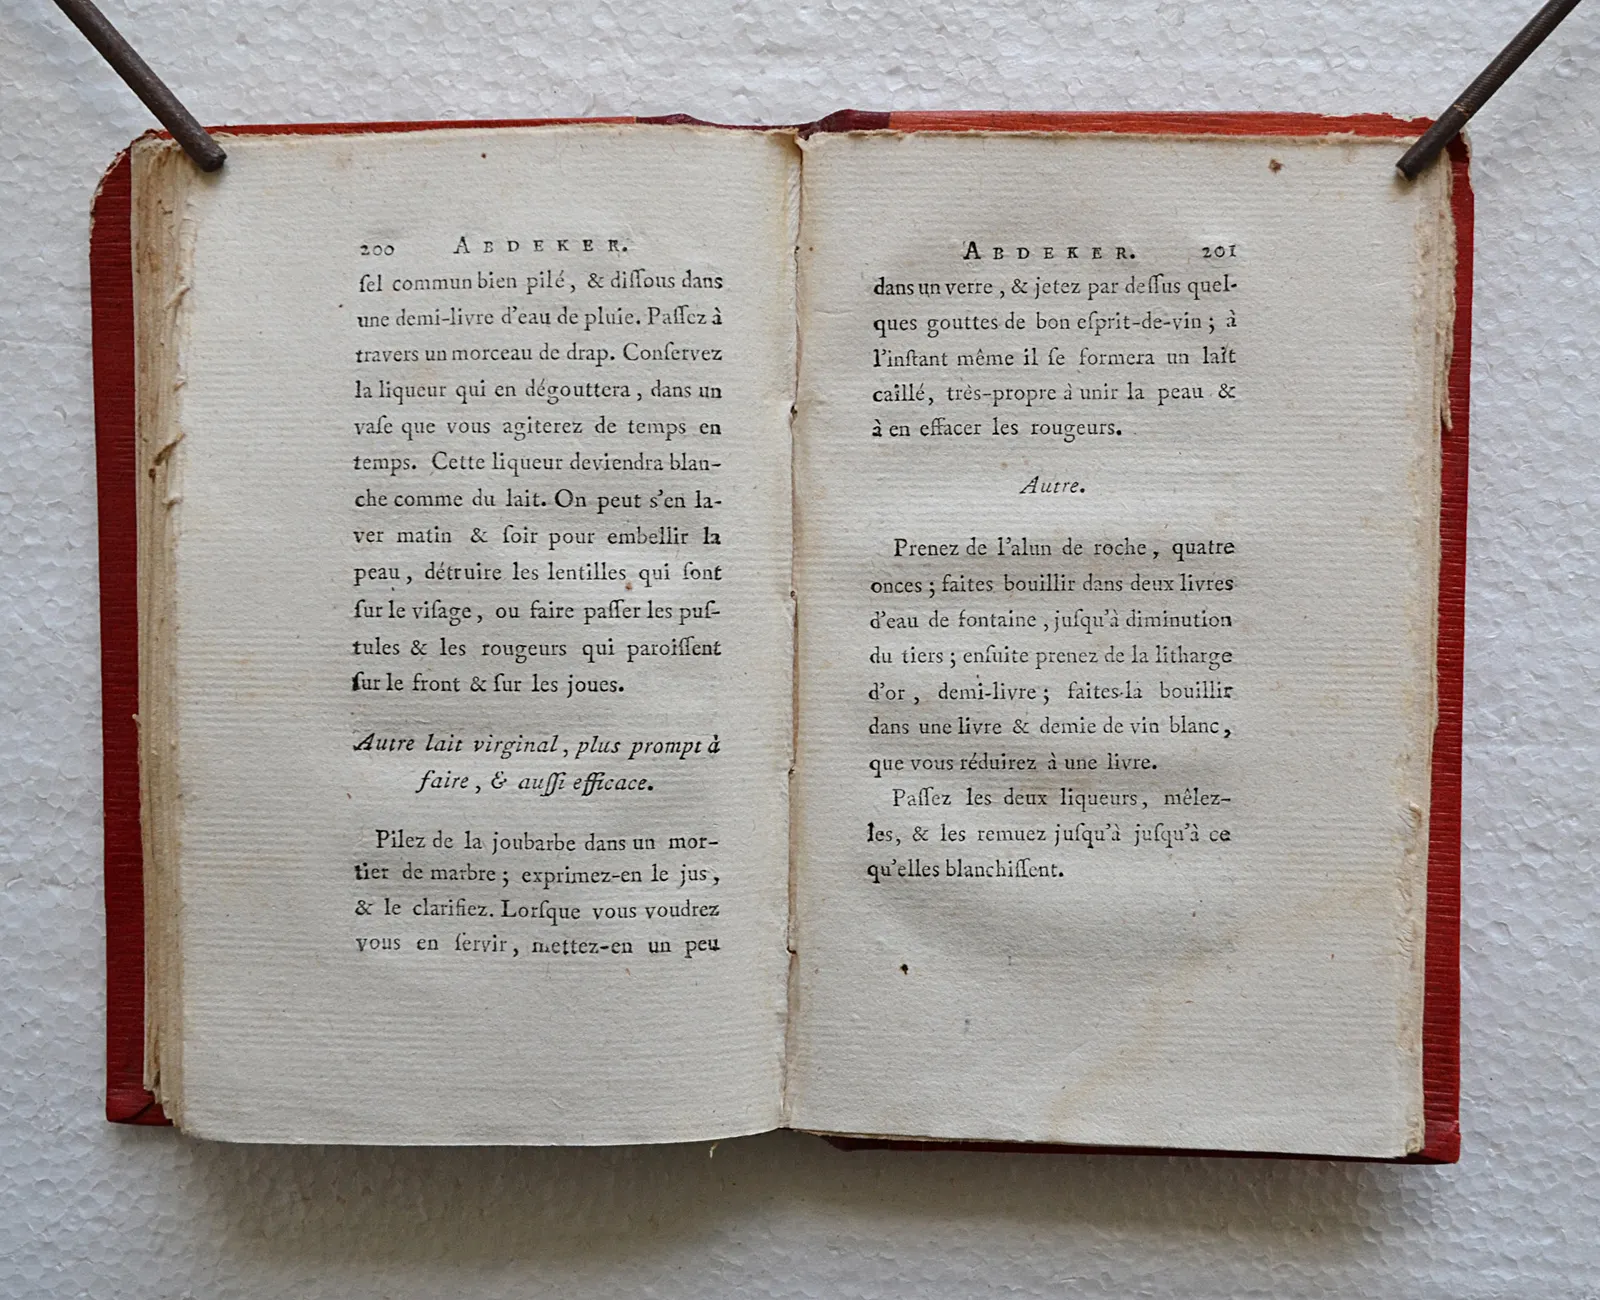 200 ABDEKER.
ſel commun bien pilé, & diſſous dans
une demi-livre d'eau de pluie. Paſſez à
travers un morceau de drap. Conſervez
la liqueur qui en dégouttera, dans un
vaſe que vous agiterez de temps en
temps. Cette liqueur deviendra blan-
che comme du lait. On peut s'en la-
ver matin & ſoir pour embellir la
peau, détruire les lentilles qui ſont
ſur le viſage, ou faire paſſer les puſ-
tules & les rougeurs qui paroiſſent
ſur le front & ſur les joues.
Autre lait virginal, plus prompt à
faire, & auſſi efficace.
Pilez de la joubarbe dans un mor-
tier de marbre; exprimez-en le jus,
& le clarifiez. Lorſque vous voudrez
vous en ſervir, mettez-en un peu
ABDEKER. 201
dans un verre, & jetez par deſſus quel-
ques gouttes de bon eſprit-de-vin; à
l'inſtant même il ſe formera un lait
caillé, très-propre à unir la peau &
à en effacer les rougeurs.
Autre.
Prenez de l'alun de roche, quatre
onces; faites bouillir dans deux livres
d'eau de fontaine, juſqu'à diminution
du tiers; enſuite prenez de la litharge
d'or, demi-livre; faites-la bouillir
dans une livre & demie de vin blanc,
que vous réduirez à une livre.
Paſſez les deux liqueurs, mêlez-
les, & les remuez juſqu'à juſqu'à ce
qu'elles blanchiſſent.